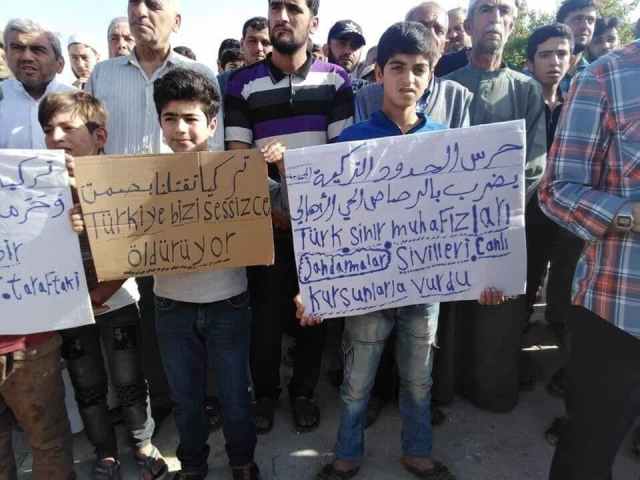 تركيا
. taraftaki
تركيا تقتلنا بصمت
Türkiye bizi sessizce
öldürüyor
حرس الحدود التركية
يضرب بالرصاص الحي الأهالي
Türk sinir muhafızları
Jandarmalar Sivilleri Canlı
Kurşunlarla vurdu